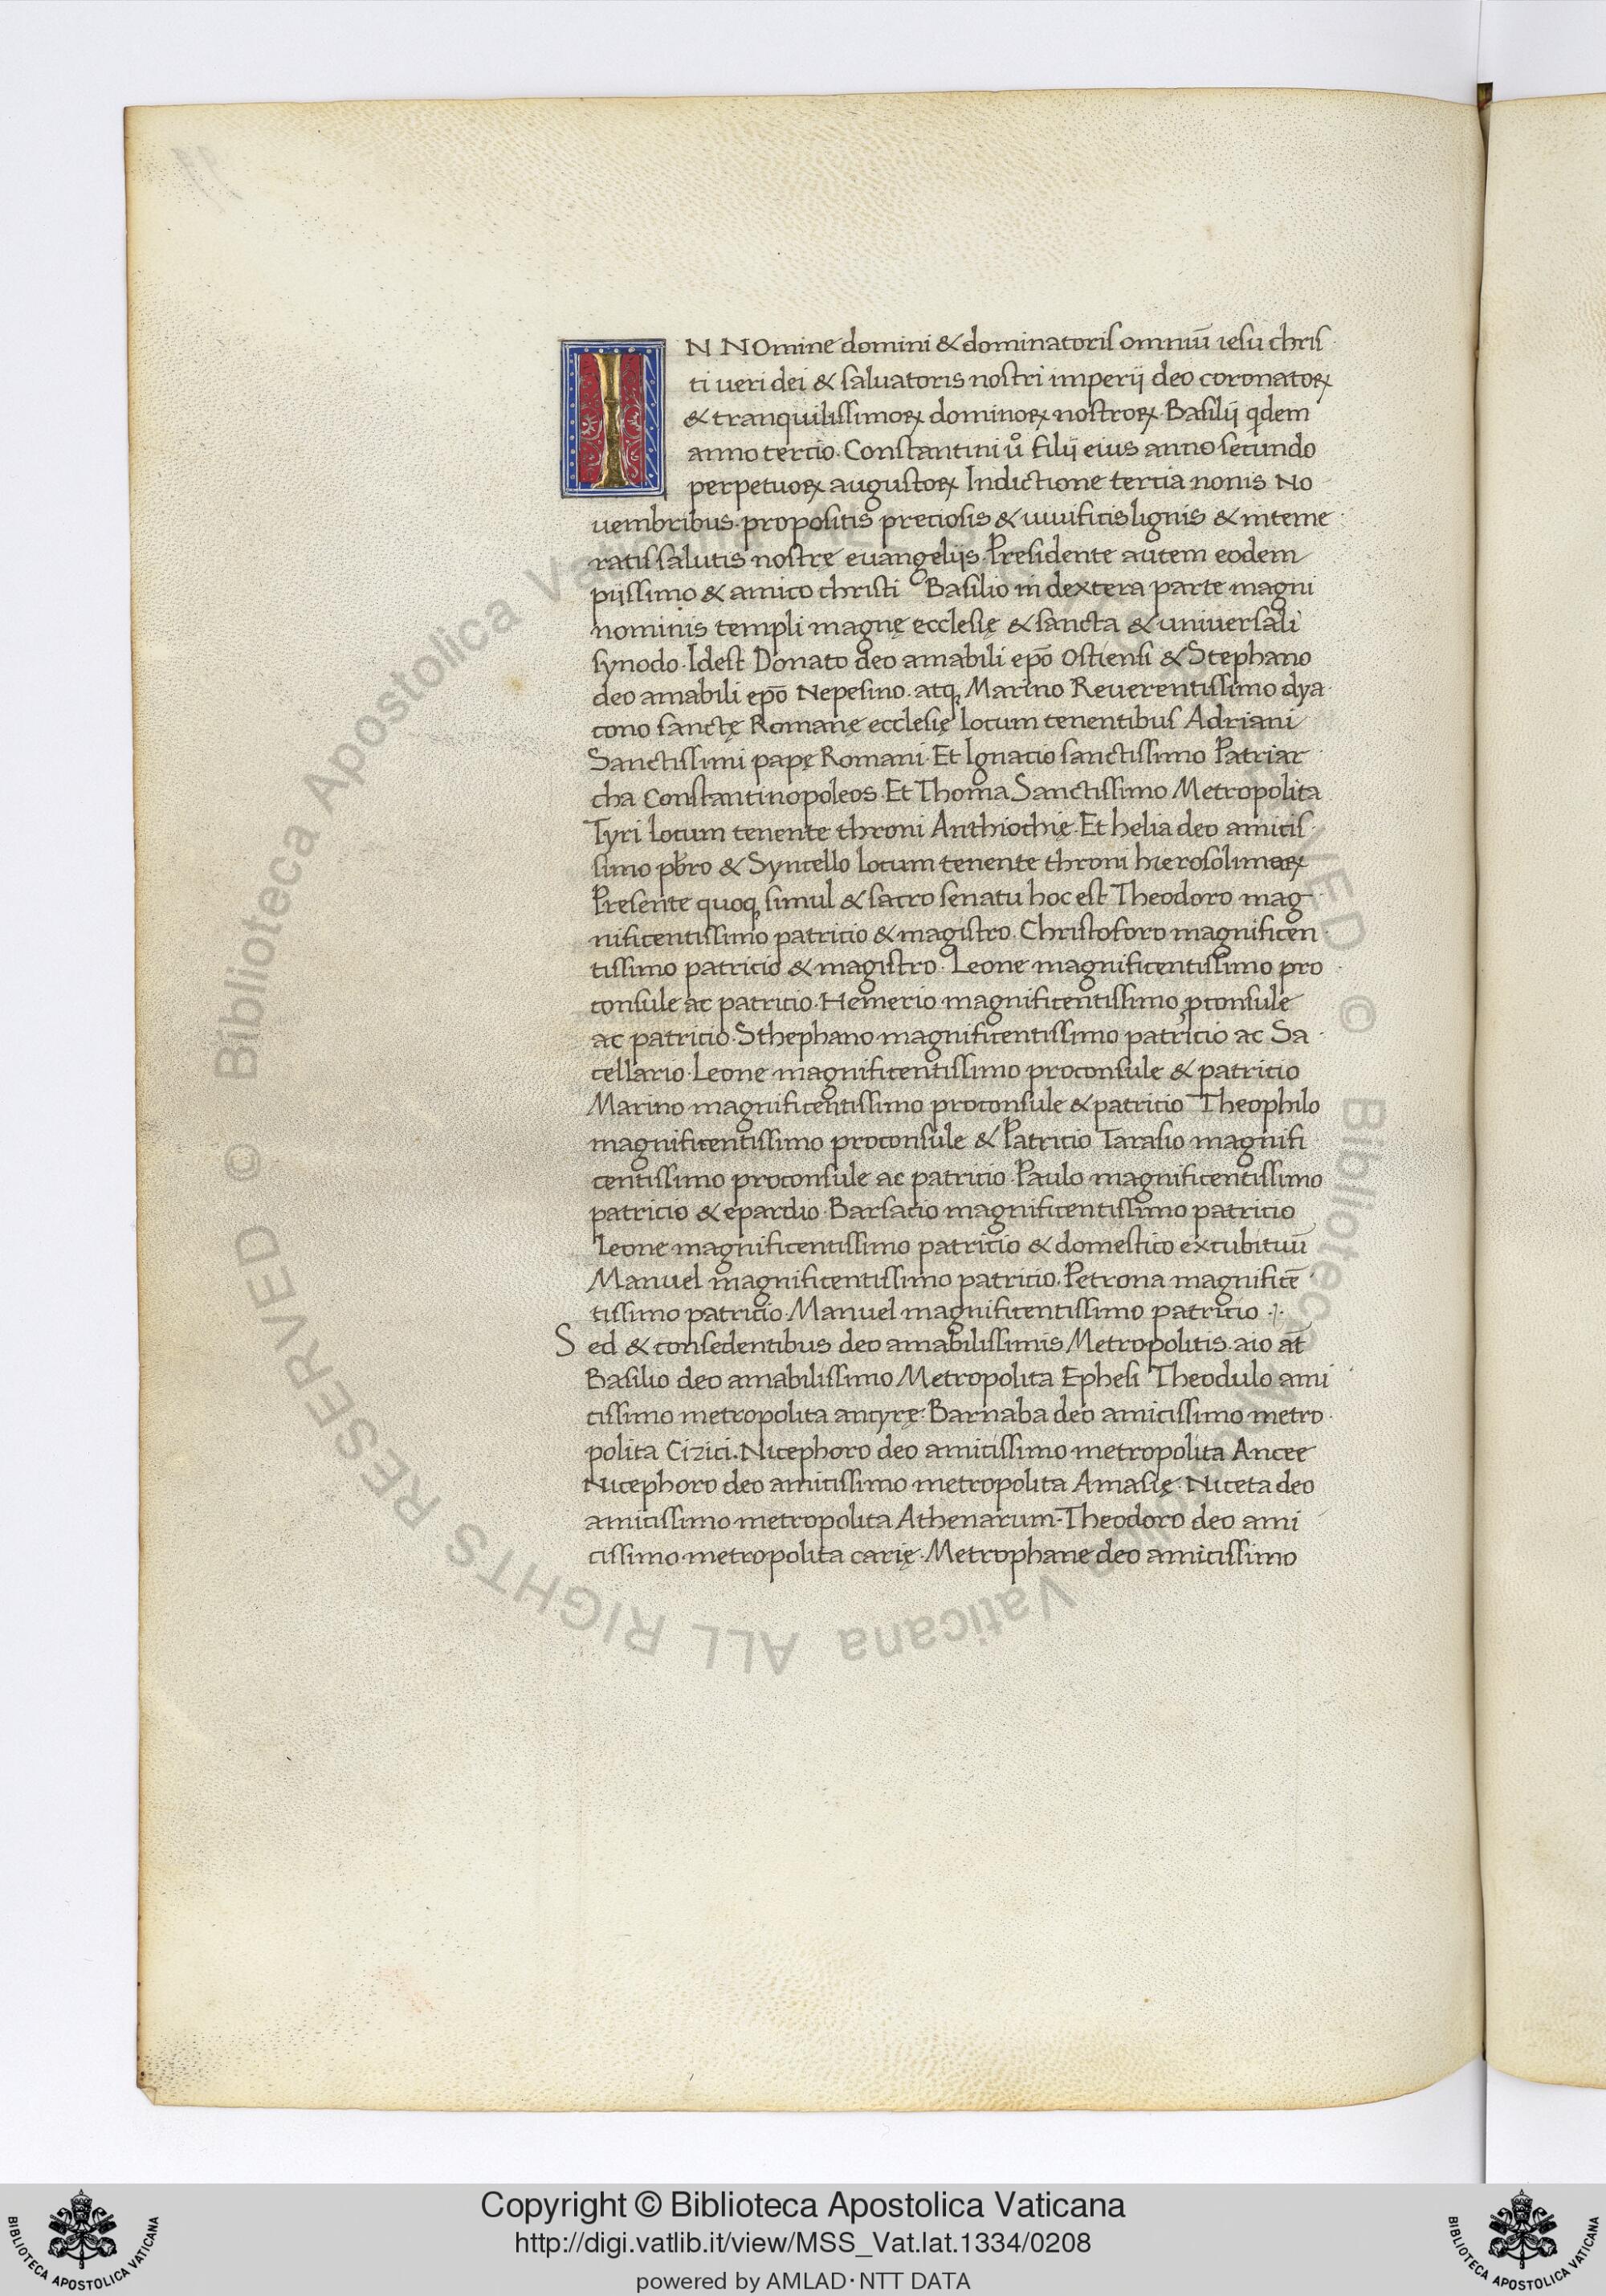 IN NOmine domini & dominatoris omniū iesu chris
ti ueri dei & saluatoris nostri imperij deo coronatoꝝ
& tranquilissimoꝝ dominoꝝ nostroꝝ. Basilij qdem
anno tercio. Constantini uͦ filij eius anno secundo
perpetuoꝝ augustoꝝ Indictione tercia nonis No
uembribus. propositis preciosis & uiuificis lignis & inteme
ratis salutis nostrę euangelijs. Presidente autem eodem
piissimo & amico christi Basilio in dextera parte magni
nominis templi magnę ecclesię & sancta & uniuersali
synodo. Idest Donato deo amabili epō Ostiensi & Stephano
deo amabili epō Nepesino. atq; Marino Reuerentissimo dya
cono sanctę Romanę ecclesię locum tenentibus Adriani
Sanctissimi papę Romani. Et Ignacio sanctissimo Patriar
cha Constantinopoleos. Et Thoma Sanctissimo Metropolita
Tyri locum tenente throni Anthiochię. Et helia deo amicis
simo pbro & Syncello locum tenente throni hierosolimoꝝ
Presente quoq; simul & sacro senatu hoc est Theodoro mag
nificentissimo patricio & magistro. Christoforo magnificen
tissimo patricio & magistro. Leone magnificentissimo pro
consule ac patricio. Hemerio magnificentissimo ꝓconsule
ac patricio. Sthephano magnificentissimo patricio ac Sa
cellario. Leone magnificentissimo proconsule & patricio
Marino magnificentissimo proconsule & patricio Theophilo
magnificentissimo proconsule & Patricio Tarasio magnifi
centissimo proconsule ac patricio. Paulo magnificentissimo
patricio & epardio. Barsacio magnificentissimo patricio
Leone magnificentissimo patricio & domestico excubituū
Manuel magnificentissimo patricio. Petrona magnificē
tissimo patricio. Manuel magnificentissimo patricio
Sed & consedentibus deo amabilissimis Metropolitis. aio at
Basilio deo amabilissimo Metropolita Ephesi Theodulo ami
cissimo metropolita ancyrę. Barnaba deo amicissimo metro
polita Cizici. Nicephoro deo amicissimo metropolita Ancee
Nicephoro deo amicissimo metropolita Amasię. Niceta deo
amicissimo metropolita Athenarum. Theodoro deo ami
cissimo metropolita carię. Metrophane deo amicissimo
© Biblioteca Apostolica Vaticana ALL RIGHTS RESERVED © Biblioteca Apostolica Vaticana ALL RIGHTS RESERVED
Copyright © Biblioteca Apostolica Vaticana
http://digi.vatlib.it/view/MSS_Vat.lat.1334/0208
powered by AMLAD·NTT DATA
BIBLIOTECA APOSTOLICA VATICANA
BIBLIOTECA APOSTOLICA VATICANA